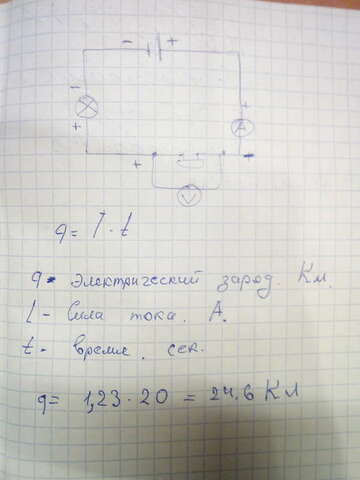 - +
- +
X
+ A
+ -
V
q = I · t
q - Электрический заряд. Кл.
I - Сила тока. А.
t - время. сек.
q = 1,23 · 20 = 24.6 Кл